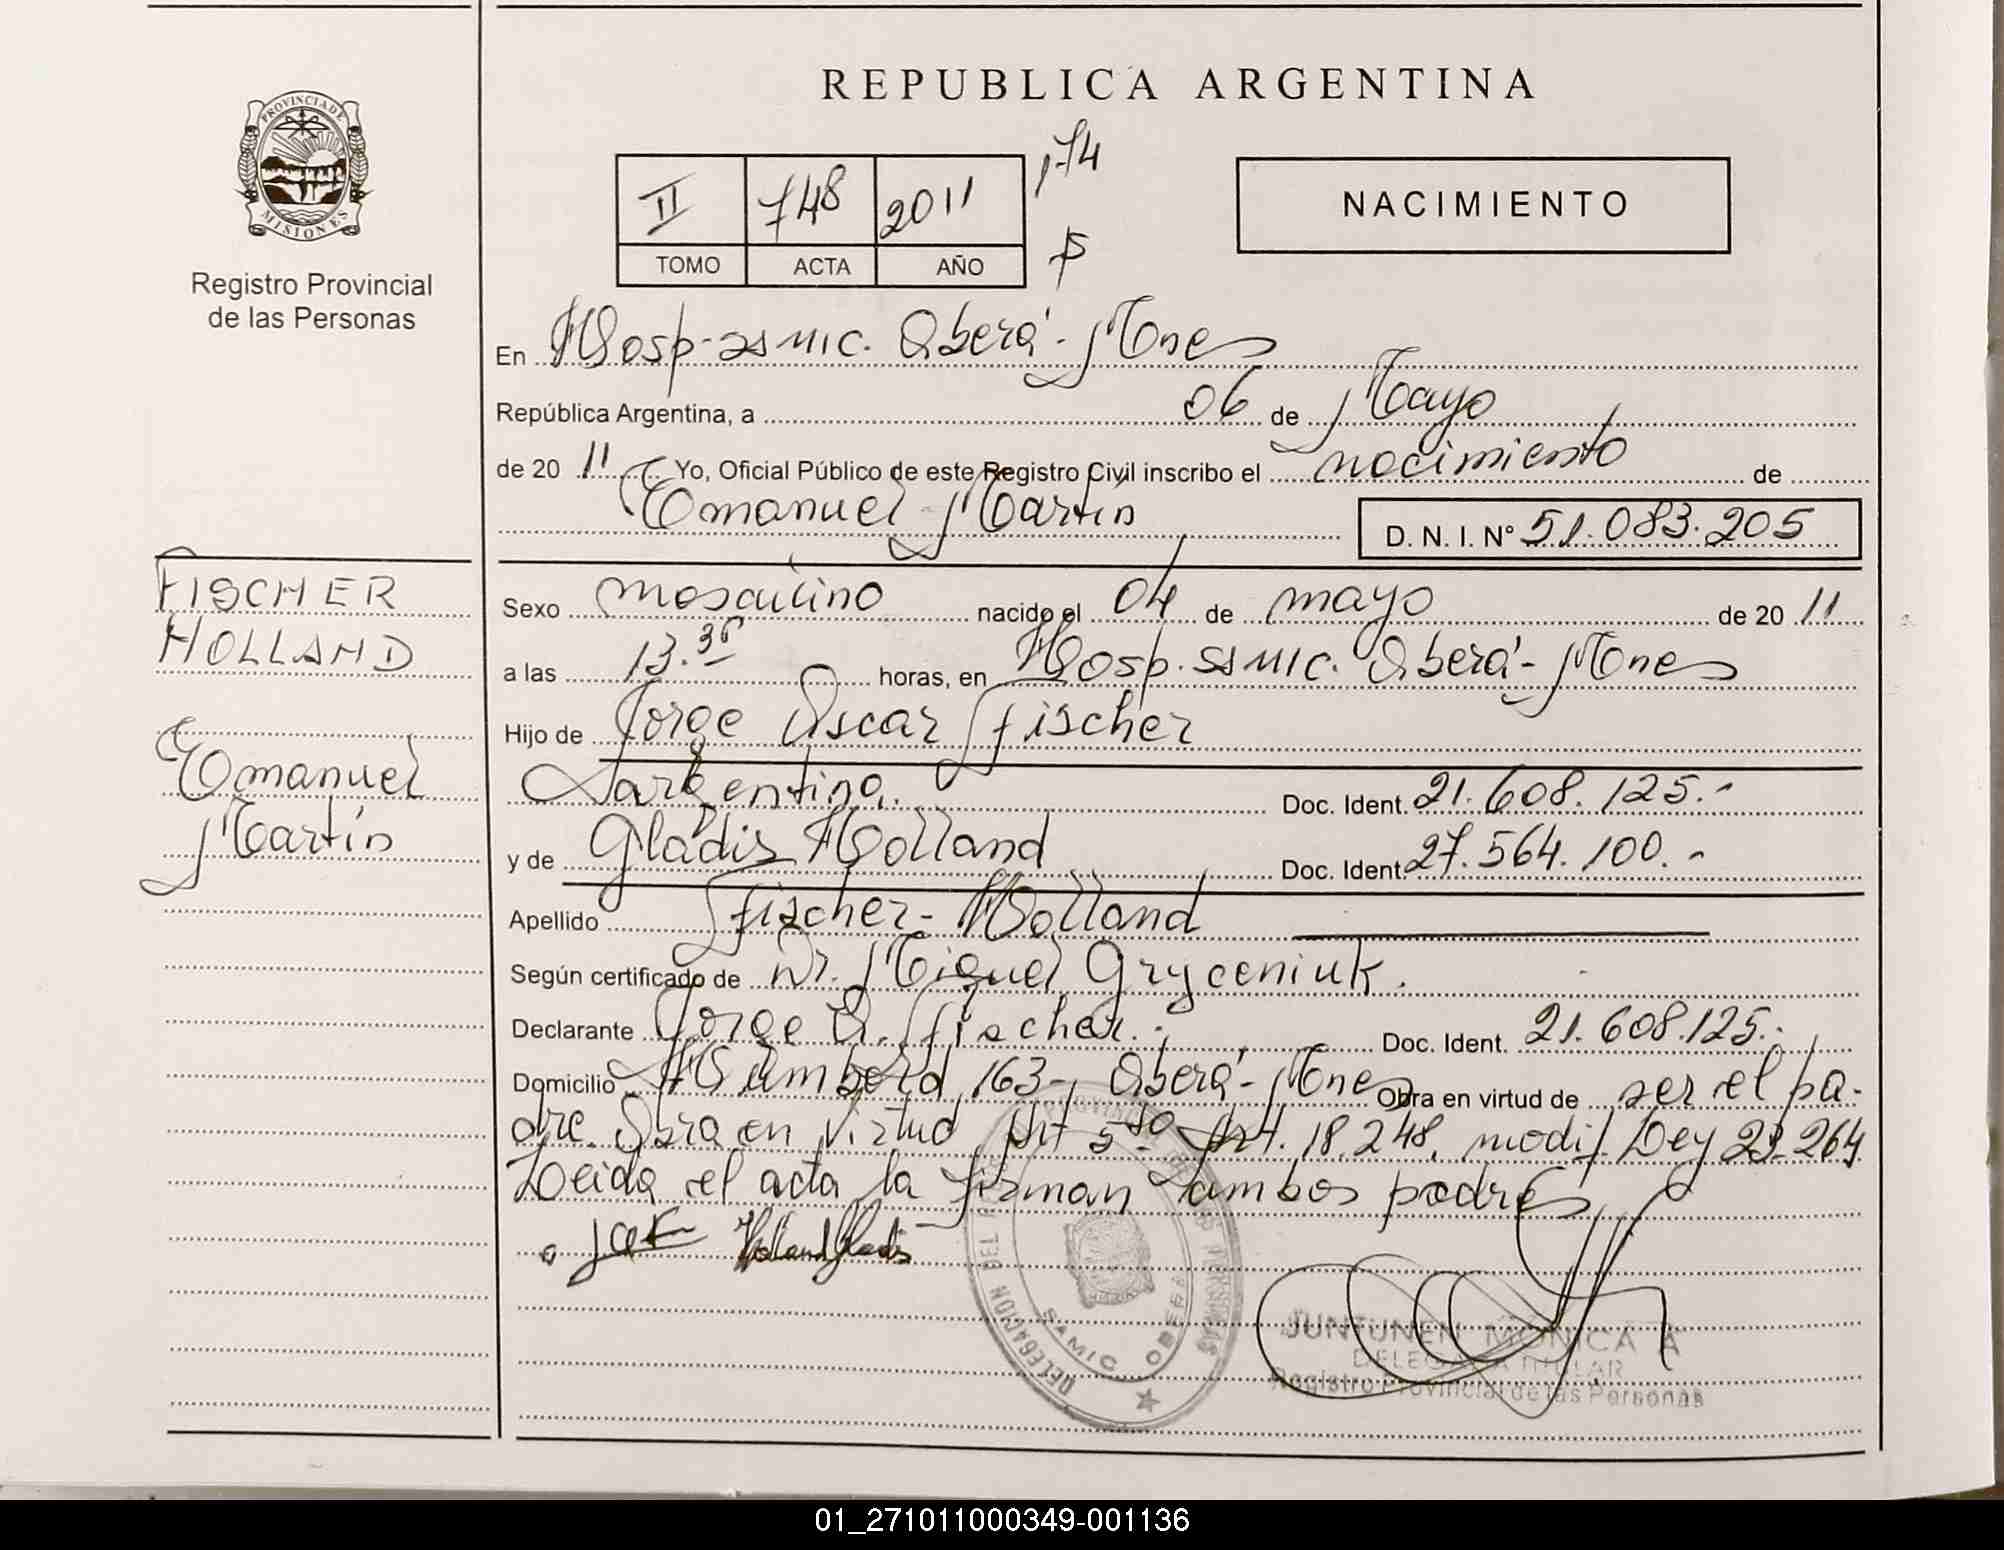 REPUBLICA ARGENTINA
PROVINCIA DE
MISIONES
Registro Provincial
de las Personas
II 748 2011 174
TOMO ACTA AÑO
NACIMIENTO
En Hosp. samic. Oberá - Mnes
República Argentina, a 06 de Mayo
de 20 11 Yo, Oficial Público de este Registro Civil inscribo el nacimiento de
Emanuel Martín D. N. I. Nº 51.083.205
FISCHER
HOLLAND
Emanuel
Martín
Sexo masculino nacido el 04 de mayo de 20 11
a las 13.36 horas, en Hosp. samic. Oberá - Mnes
Hijo de Jorge Oscar Fischer
Argentina. Doc. Ident. 21.608.125.-
y de Gladis Holland Doc. Ident. 27.564.100.-
Apellido Fischer - Holland
Según certificado de Dr. Miguel Gryceniuk.
Declarante Jorge O. Fischer. Doc. Ident. 21.608.125.
Domicilio 163 - Oberá - Mnes Obra en virtud de ser el pa-
dre. Obra en virtud Art 5to Art. 18.248, modif. Ley 23.264
Leida el acta la firman ambos padres
Holland Gladis
DELEGACION DEL REG. PROVINCIAL DE LAS PERSONAS
SAMIC OBERA
JUNTUNEN MONICA A
DELEGADA TITULAR
Registro Provincial de las Personas
01_271011000349-001136